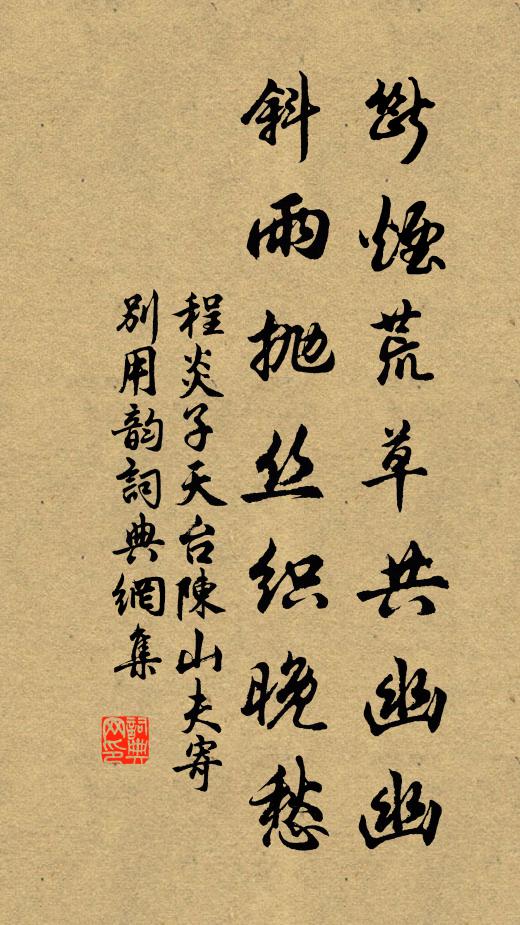 断煙荒草共幽幽
斜雨抛丝织晚愁
程炎子天台陳山夫寄
别用韵詞典網集
詞典网印